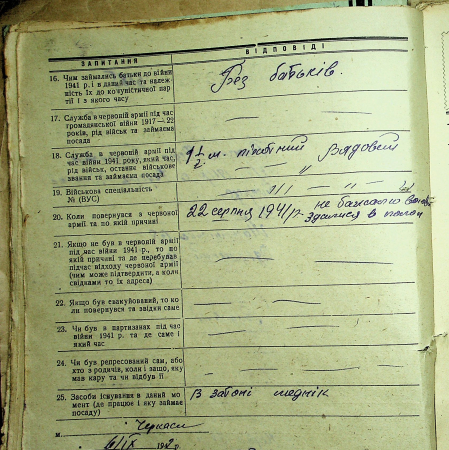 ЗАПИТАННЯ
ВІДПОВІДІ
16. Чим займались батьки до війни
1941 р. і в даний час та належ-
ність їх до комуністичної пар-
тії і з якого часу
Без батьків.
17. Служба в червоній армії під час
громадянської війни 1917—22
років, рід військ та займаєма
посада
18. Служба в червоній армії під
час війни 1941 року, який час,
рід військ, останнє військове
звання та займаєма посада
1 1/2 м. піхотний Рядовой
19. Військова спеціальність
№ (ВУС)
20. Коли повернувся з червоної
армії та по якій причині
22 серпня 1941 р. не бажаючи
здалися в полон
21. Якщо не був в червоній армії
під час війни 1941 р., то по
якій причині та де перебував
підчас відходу червоної армії
(чим може підтвердити, а коли
свідками то їх адреса)
22. Якщо був евакуйований, то ко-
ли повернувся та звідки саме
23. Чи був в партизанах під час
війни 1941 р. та де саме і
який час
24. Чи був репресований сам, або
хто з родичів, коли і защо, яку
мав кару та чи відбув її
25. Засоби існування в даний мо-
мент (де працює і яку займає
посаду)
В затоні меднік
м. Черкаси
/IX 194 р.